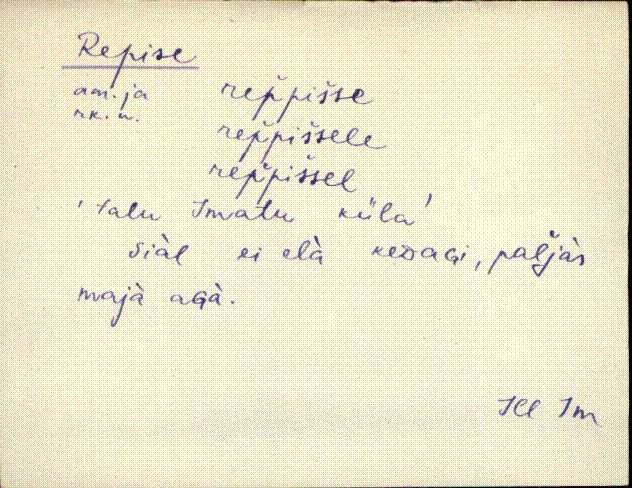 Repise
am. ja reppišse
rk. u. reppišsele
reppišsel
'talu Imatu küla'
siàl ei elà keDAGi, paljàs
majà aGà.
Ill Im